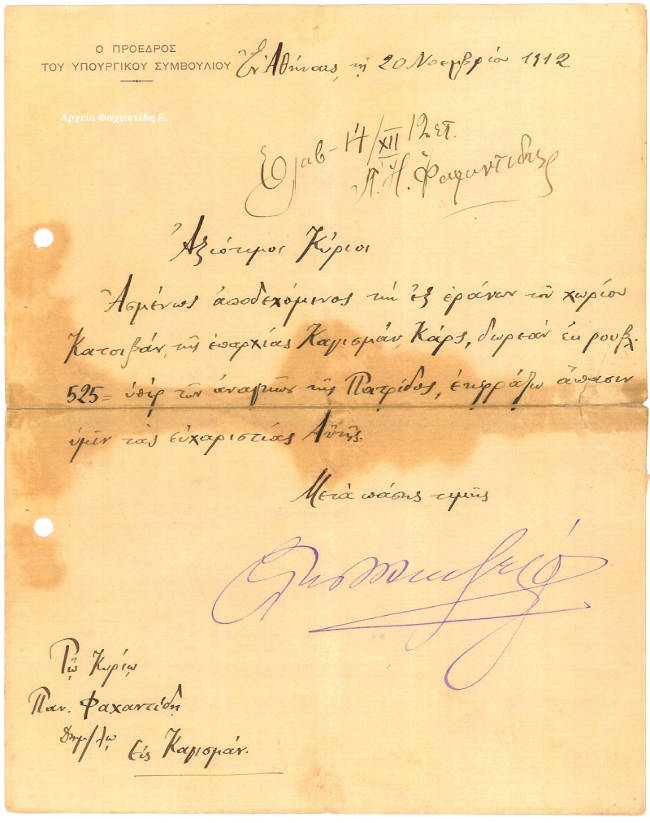 Ο ΠΡΟΕΔΡΟΣ
ΤΟΥ ΥΠΟΥΡΓΙΚΟΥ ΣΥΜΒΟΥΛΙΟΥ
Ἐν Ἀθήναις, τῇ 20 Νοεμβρίου 1912
Αρχείο Φαχαντίδη Ε.
Ἔλαβ- 14/XII 12 ἔτ.
Π. Η. Φαχαντίδης
Ἀξιότιμοι Κύριοι
Ἀσμένως ἀποδεχόμενος τὴν ἐξ ἐράνων τοῦ χωρίου
Κατσιβάν, τῆς ἐπαρχίας Καγισμάν, Κάρς, δωρεὰν ἐκ ρουβλ.
525= ὑπὲρ τῶν ἀναγκῶν τῆς Πατρίδος, ἐκφράζω ἅπασιν
ὑμῖν τὰς εὐχαριστίας Αὐτῆς.
Μετὰ πάσης τιμῆς
Τῷ Κυρίῳ
Παν. Φαχαντίδη
Δημ/λῳ
Εἰς Καγισμάν.